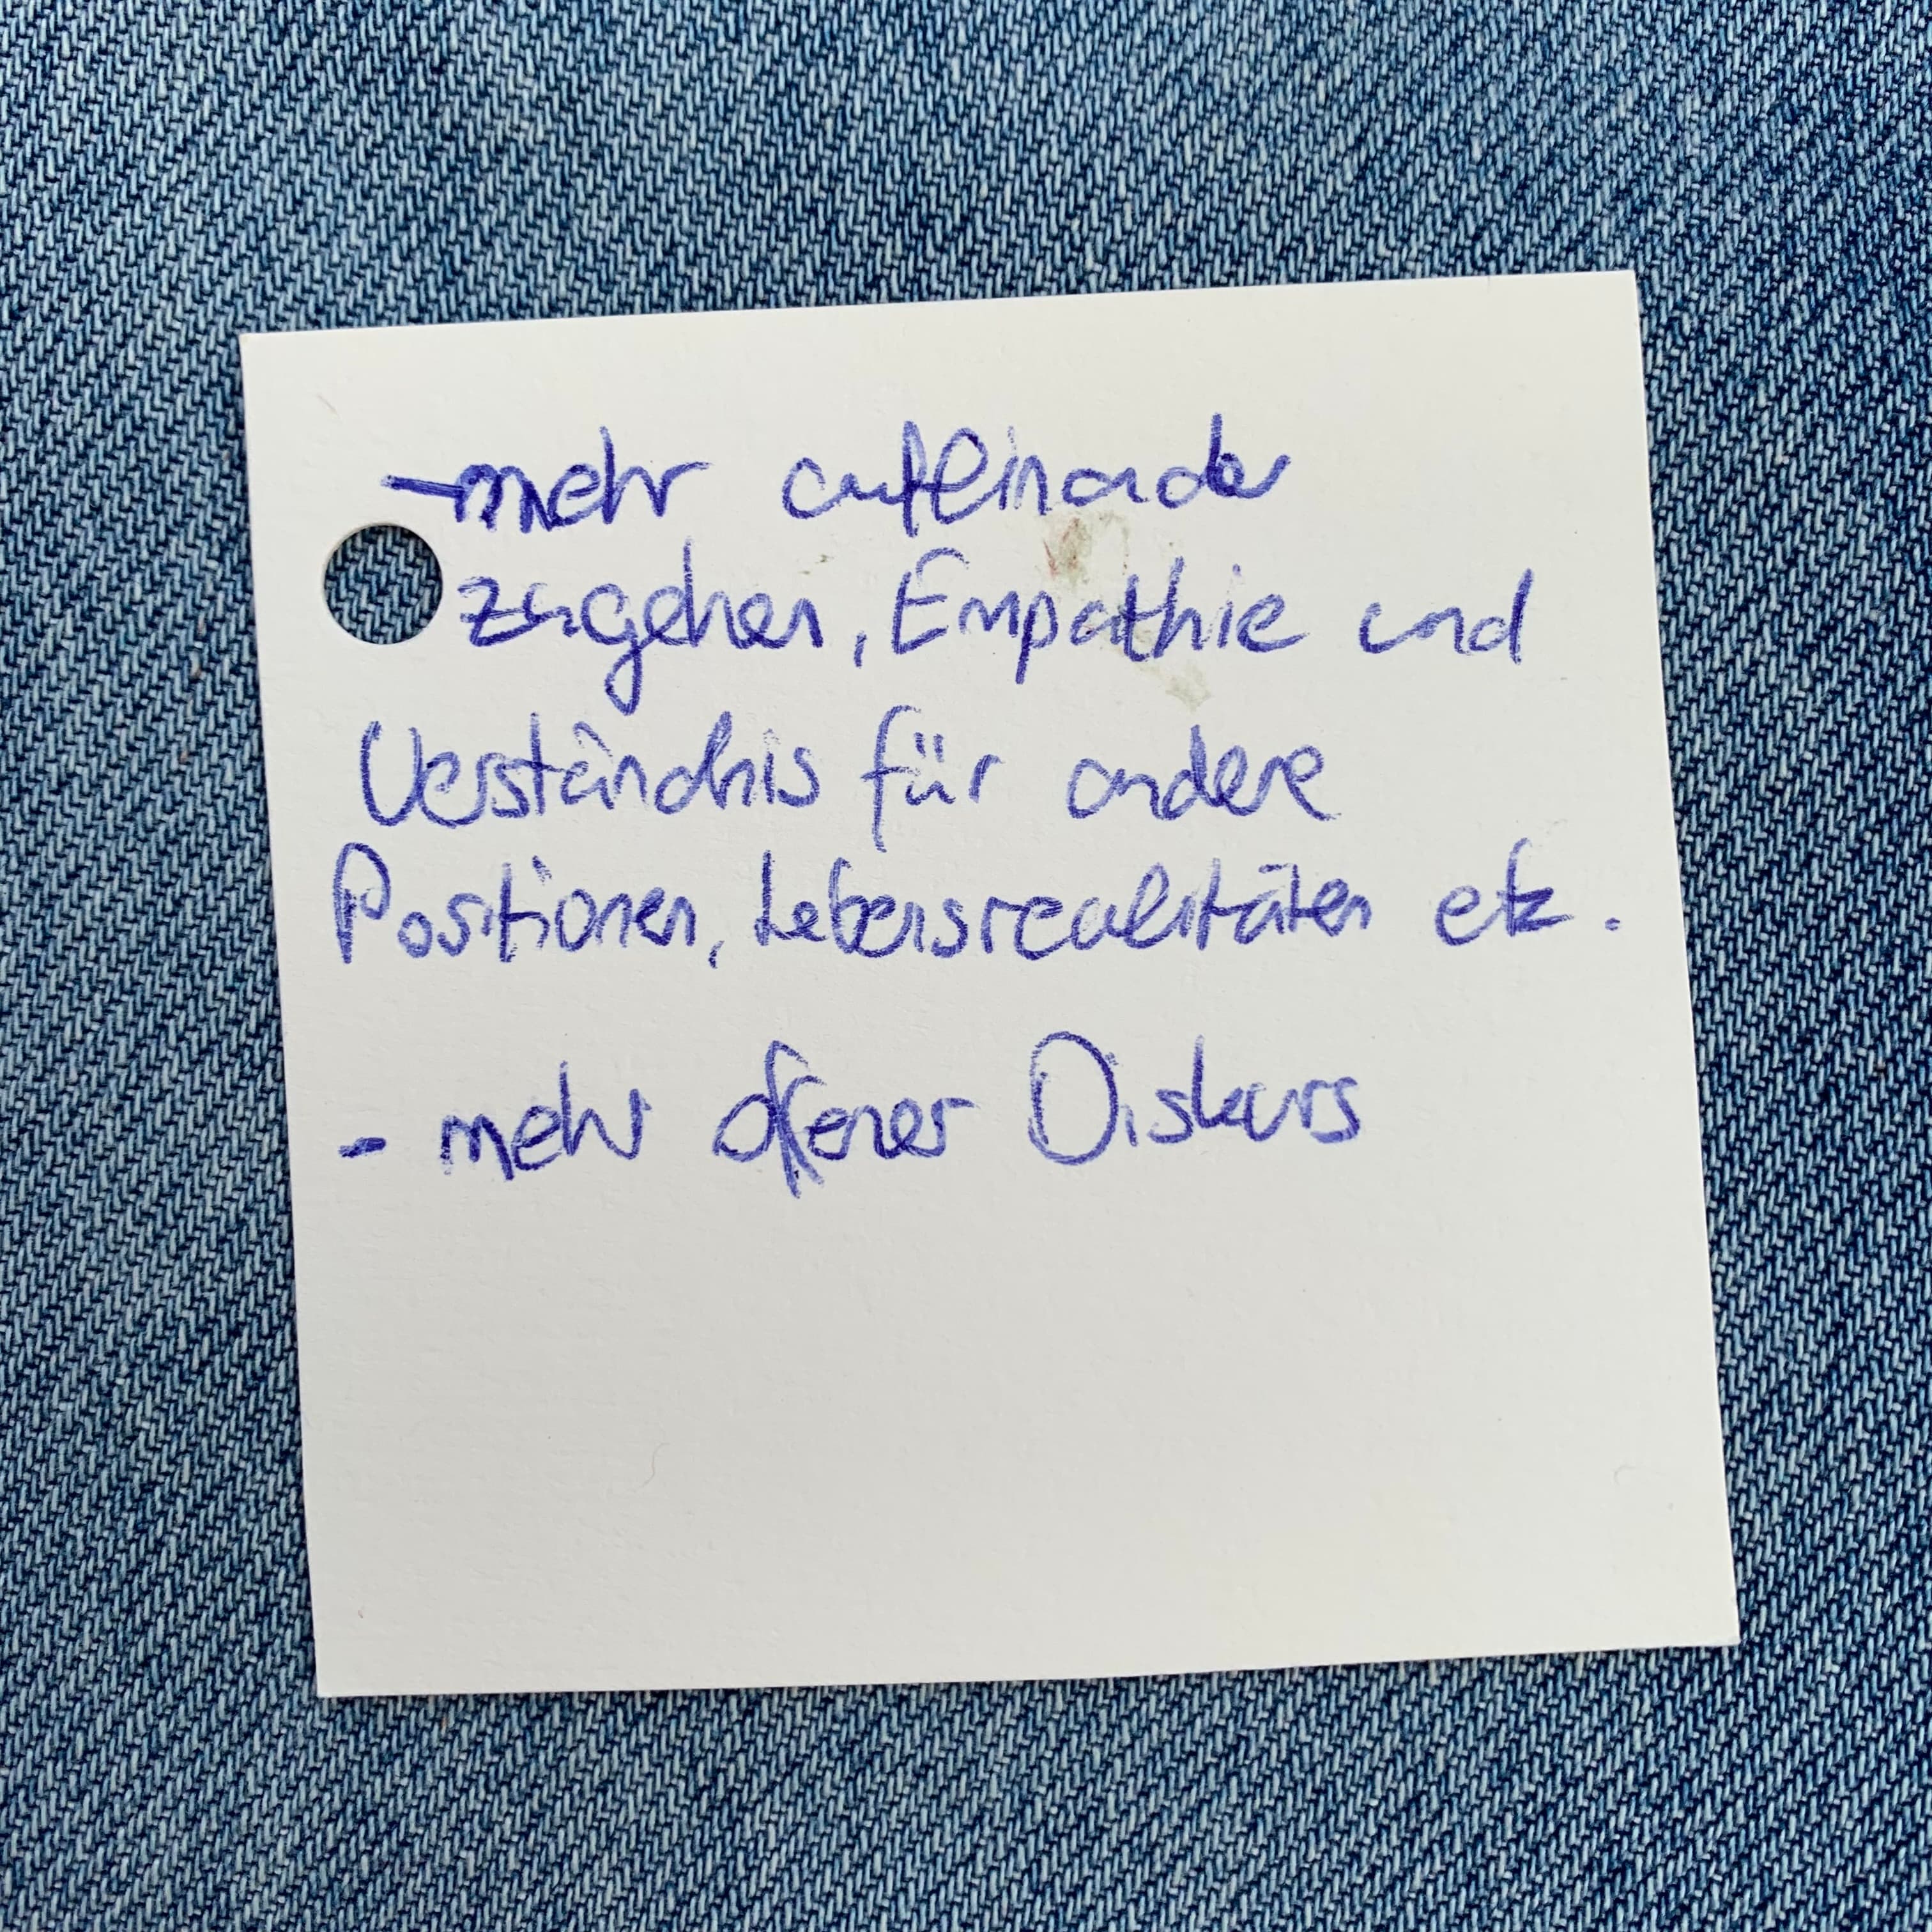 - mehr aufeinander
zugehen, Empathie und
Verständnis für andere
Positionen, Lebensrealitäten etc.
- mehr offener Diskurs